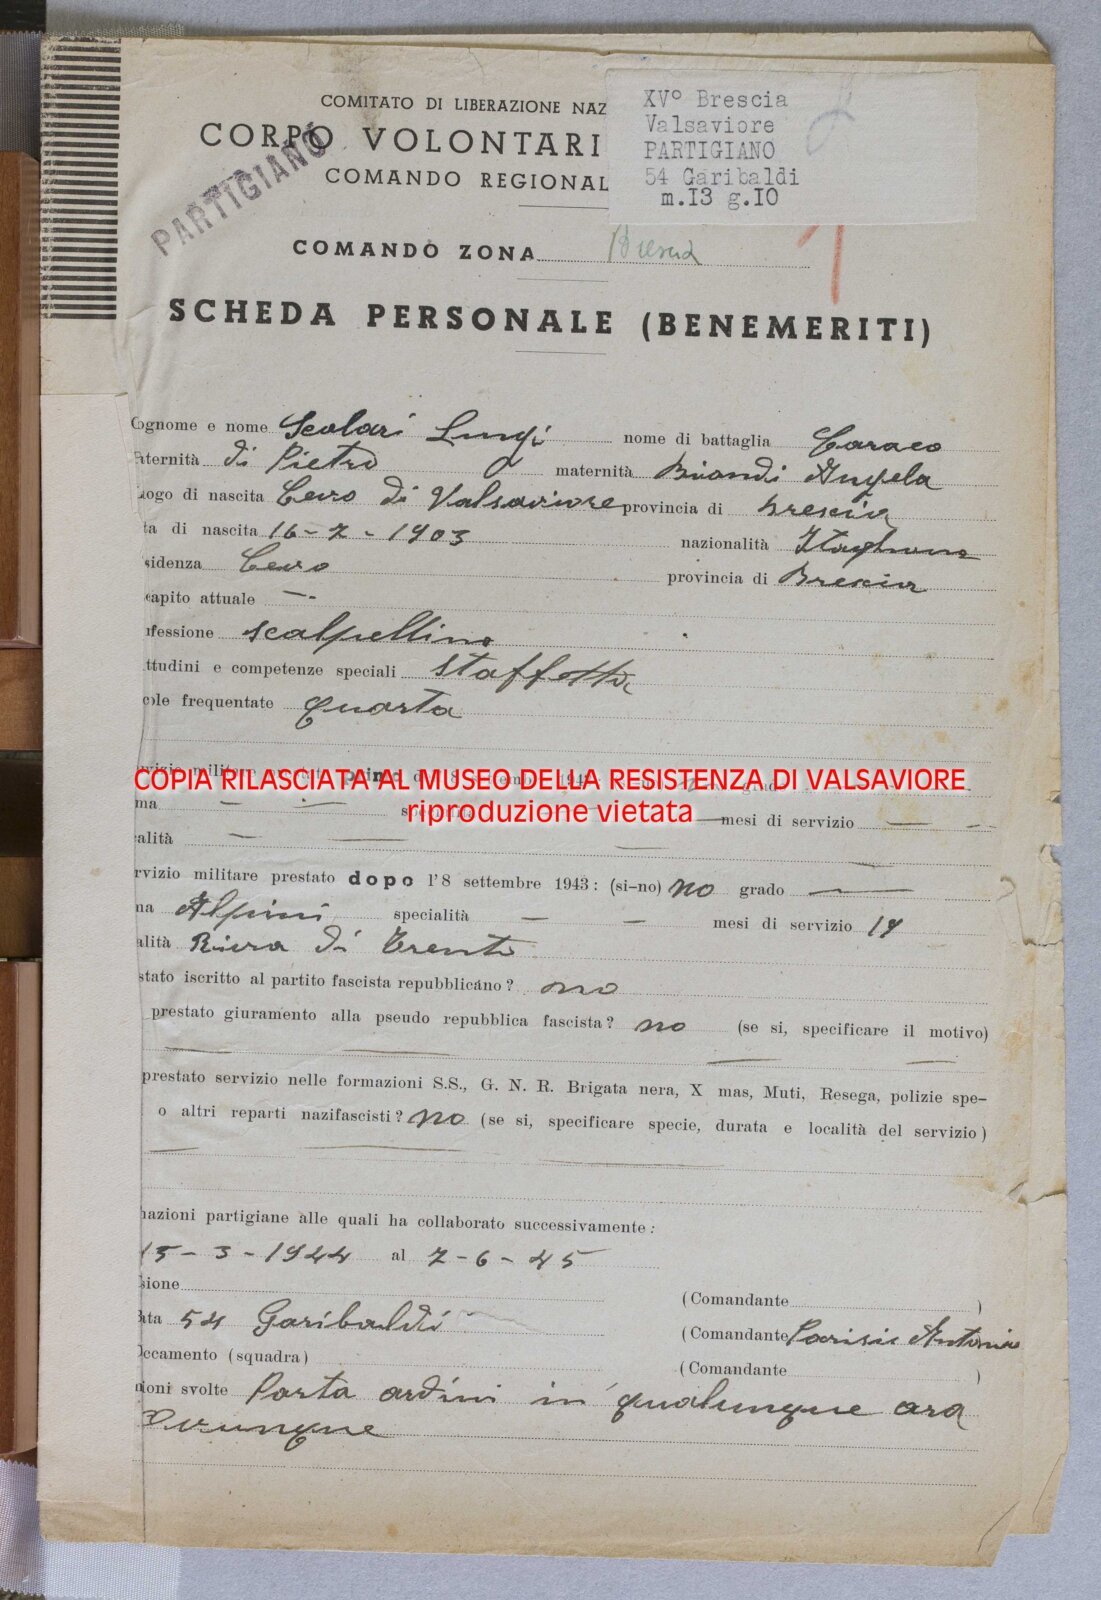 COMITATO DI LIBERAZIONE NAZ
CORPO VOLONTARI
COMANDO REGIONAL
XVº Brescia
Valsaviore
PARTIGIANO
54 Garibaldi
m.I3 g.IO
PARTIGIANO
COMANDO ZONA Brescia
SCHEDA PERSONALE (BENEMERITI)
ognome e nome Scolari Luigi nome di battaglia
aternità di Pietro maternità Biondi Angela
uogo di nascita Cevo di Valsaviore provincia di Brescia
ta di nascita 16-7-1903 nazionalità Italiana
sidenza Cevo provincia di Brescia
capito attuale —
ofessione scalpellino
ttudini e competenze speciali staffetta
ole frequentate quarta
COPIA RILASCIATA AL MUSEO DELLA RESISTENZA DI VALSAVIORE
riproduzione vietata
ma — — mesi di servizio — —
alità — — —
rvizio militare prestato dopo l'8 settembre 1943: (si-no) no grado —
na Alpini specialità — — mesi di servizio 14
alità Riva di Trento
stato iscritto al partito fascista repubblicano? no
prestato giuramento alla pseudo repubblica fascista? no (se si, specificare il motivo)
prestato servizio nelle formazioni S.S., G. N. R. Brigata nera, X mas, Muti, Resega, polizie spe-
o altri reparti nazifascisti? no (se si, specificare specie, durata e località del servizio)
mazioni partigiane alle quali ha collaborato successivamente:
15-3-1944 al 7-6-45
sione (Comandante )
ata 54 Garibaldi (Comandante Parisi Antonio
occamento (squadra) (Comandante )
nioni svolte Porta ordini in qualunque ora
Ovunque